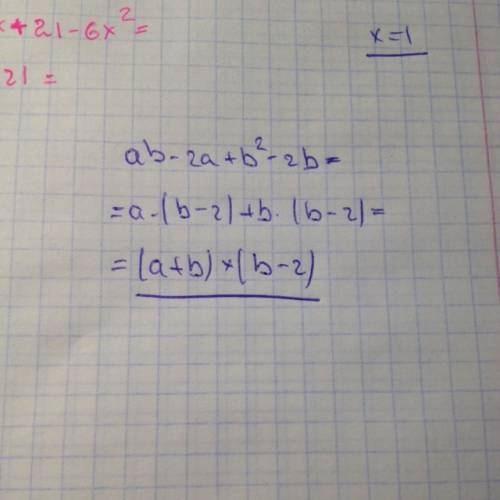 x+21-6x²=
x=1
21=
ab-2a+b²-2b=
=a·(b-2)+b·(b-2)=
=(a+b)×(b-2)